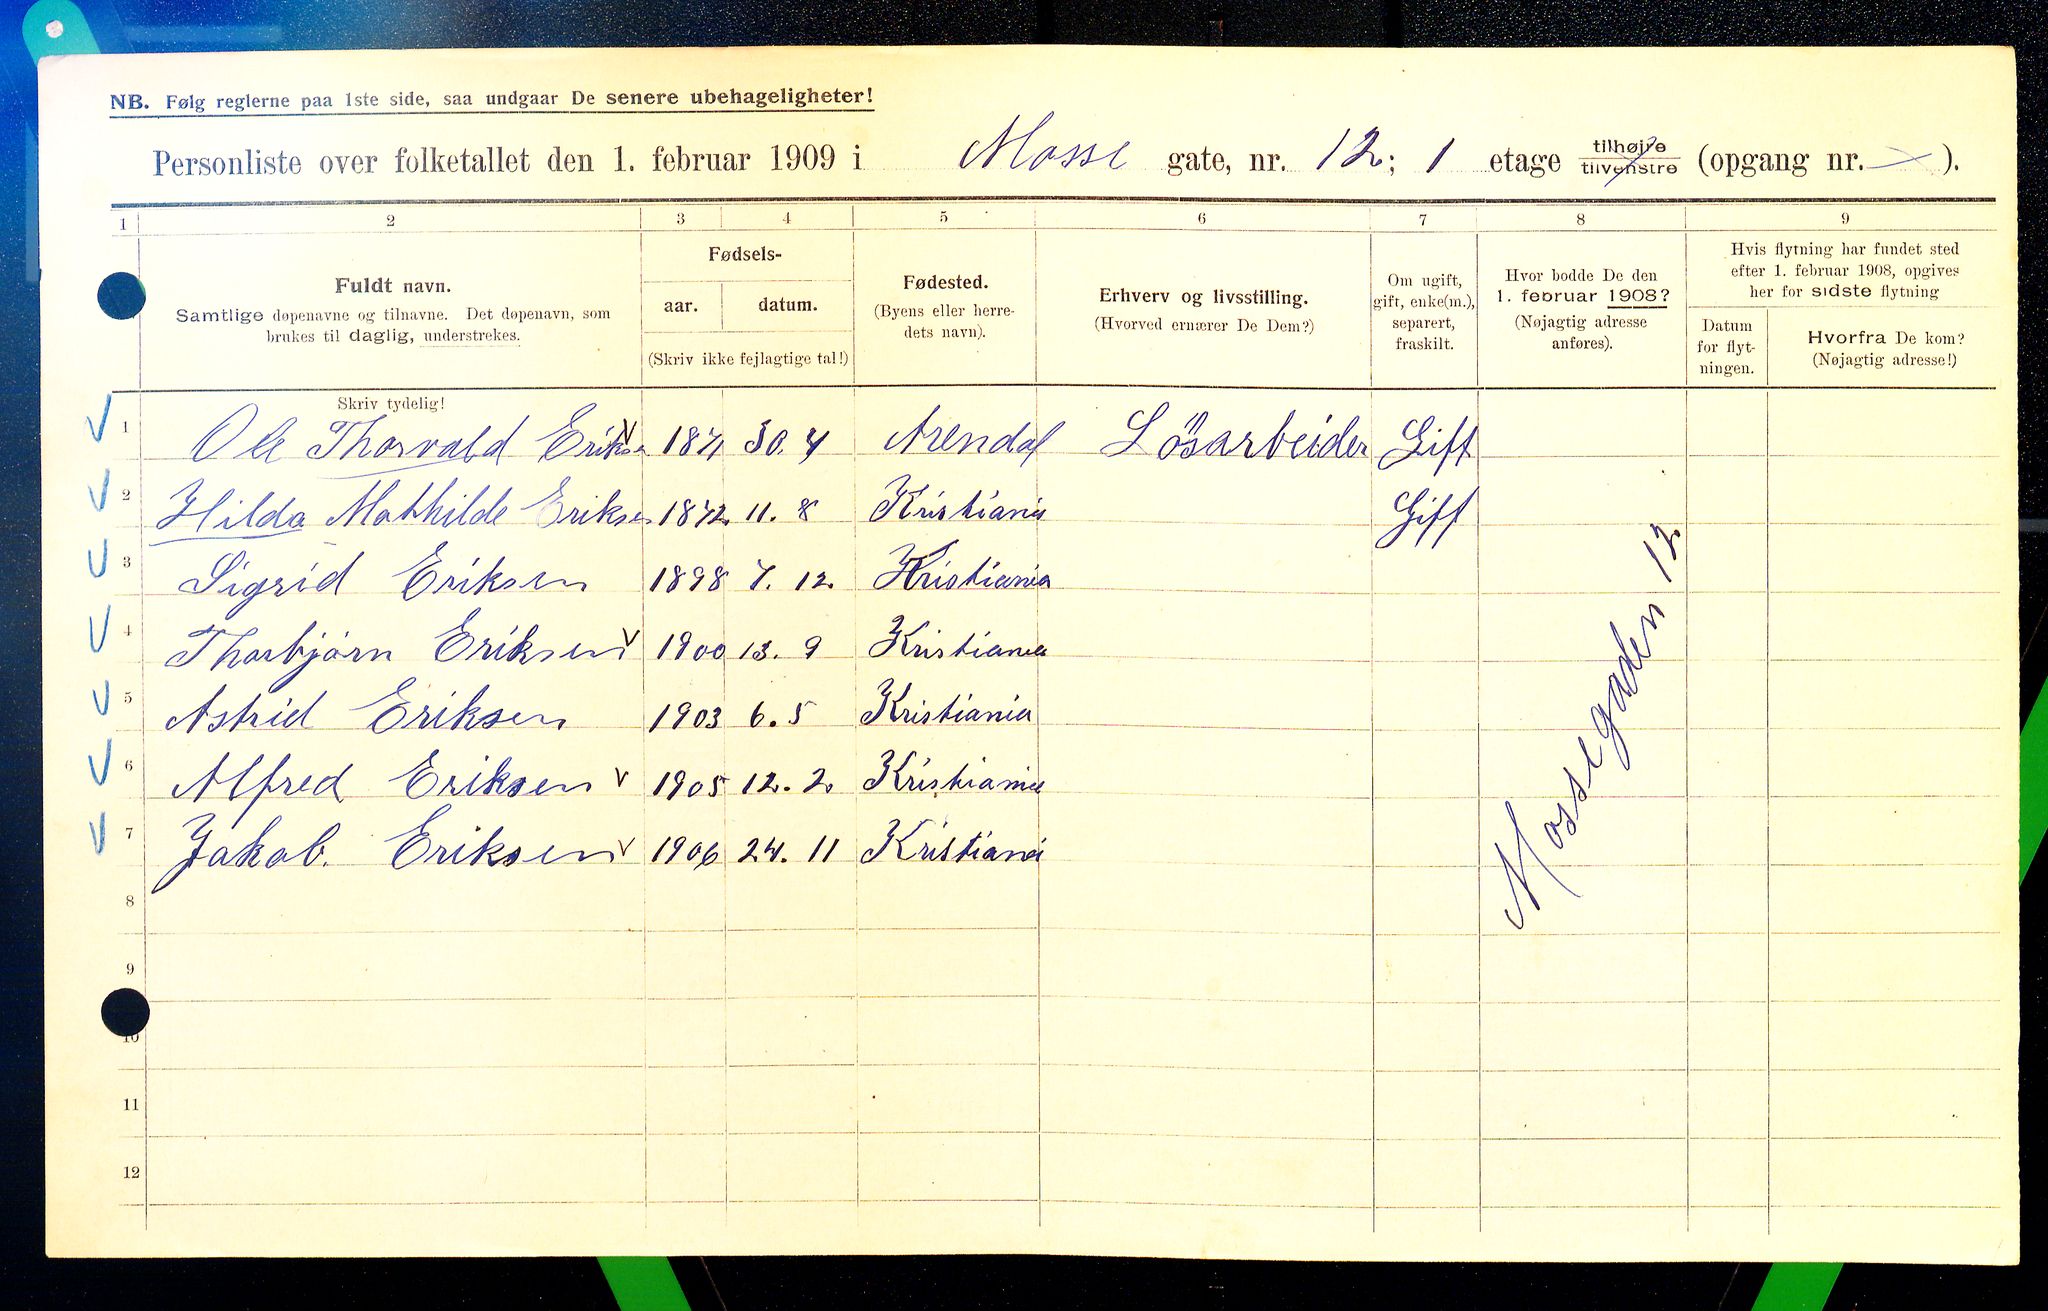 NB. Følg reglerne paa 1ste side, saa undgaar De senere ubehageligheter!
Personliste over folketallet den 1. februar 1909 i Mosse gate, nr. 12; 1 etage tilhøjre tilvenstre (opgang nr. ).
1 2 3 4 5 6 7 8 9
Fuldt navn.
Samtlige døpenavne og tilnavne. Det døpenavn, som
brukes til daglig, understrekes.
Fødsels-
aar. datum.
(Skriv ikke fejlagtige tal!)
Fødested.
(Byens eller herre-
dets navn).
Erhverv og livsstilling.
(Hvorved ernærer De Dem?)
Om ugift,
gift, enke(m.),
separert,
fraskilt.
Hvor bodde De den
1. februar 1908?
(Nøjagtig adresse
anføres).
Hvis flytning har fundet sted
efter 1. februar 1908, opgives
her for sidste flytning
Datum
for flyt-
ningen.
Hvorfra De kom?
(Nøjagtig adresse!)
Skriv tydelig!
1 Ole Thorvald Eriksen 1871 30. 4 Arendal Løsarbeider Gift
2 Hilda Mathilde Eriksen 1872 11. 8 Kristiania Gift
3 Sigrid Eriksen 1898 7. 12. Kristiania
4 Thorbjørn Eriksen 1900 13. 9 Kristiania
5 Astrid Eriksen 1903 6. 5 Kristiania
6 Alfred Eriksen 1905 12. 2. Kristiania
7 Jakob. Eriksen 1906 24. 11 Kristiania
Mossegaden 12
8
9
10
11
12